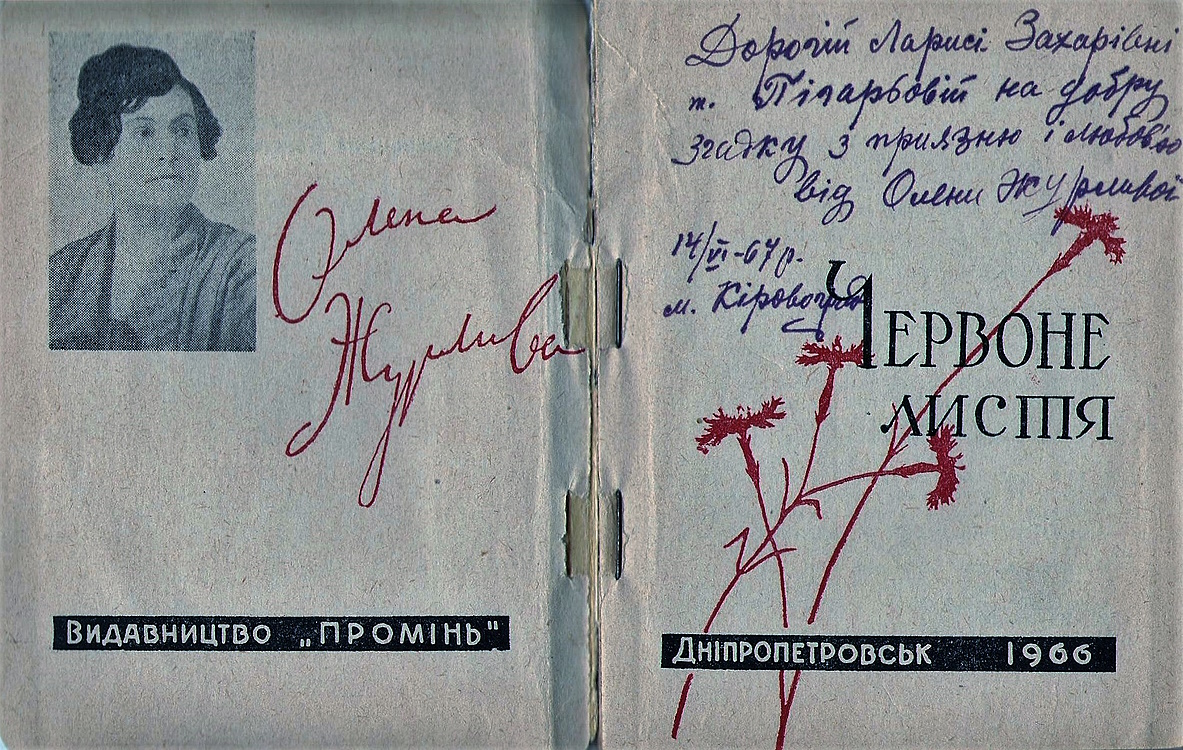 Олена
Журлива
Видавництво „Промінь"
Дорогій Ларисі Захарівні
т. на добру
згадку з приязню і любов'ю
від Олени Журливої
14/VI-67р.
м. Кіровоград
Червоне
листя
Дніпропетровськ 1966